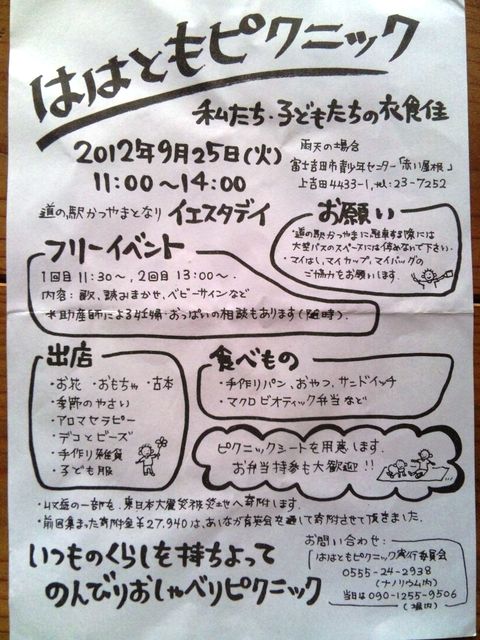 ははともピクニック
私たち・子どもたちの衣食住
2012年9月25日(火)
11:00〜14:00
雨天の場合
富士吉田市青少年センター「赤い屋根」
上吉田4433-1, tel: 23-7252
道の駅かつやまとなり イエスタデイ
お願い
・道の駅かつやまに駐車する際には
大型バスのスペースには停めないで下さい。
・マイはし、マイカップ、マイバッグの
ご協力をお願いします。
フリーイベント
1回目 11:30〜, 2回目 13:00〜.
内容: 歌、読みきかせ、ベビーサインなど
*助産師による妊婦・おっぱいの相談もあります(随時).
出店
・お花 ・おもちゃ ・古本
・季節のやさい
・アロマセラピー
・デコとビーズ
・手作り雑貨
・子ども服
食べもの
・手作りパン、おやつ、サンドイッチ
・マクロビオティック弁当など
ピクニックシートを用意します.
お弁当持参も大歓迎!!
・収益の一部を、東日本大震災被災地へ寄附します.
・前回集まった寄附金¥27,940は、あしなが育英会を通して寄附させて頂きました.
いつものくらしを持ちよって
のんびりおしゃべりピクニック
お問い合わせ:
ははともピクニック実行委員会
0555-24-2938
(ナノリウム内)
当日は090-1255-9506
(堀内)